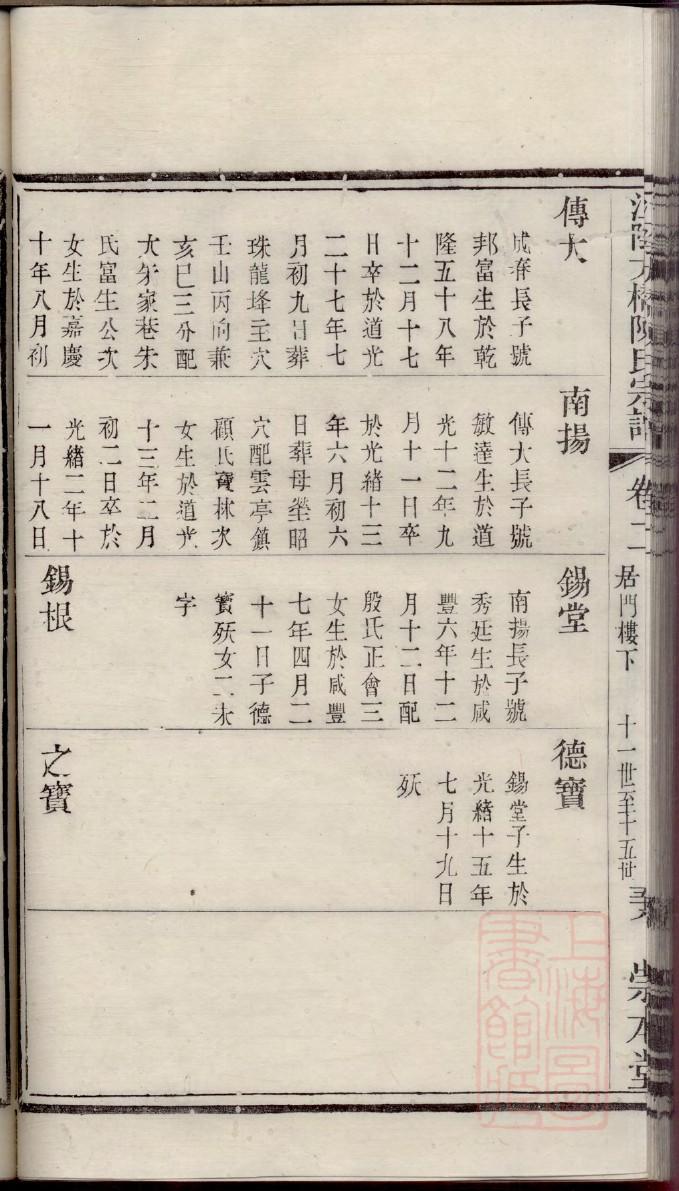 江陰方橋陳氏宗譜
卷二
居門樓下
十一世至十五世
崇本堂
傳大
成春長子號
邦富生於乾
隆五十八年
十二月十七
日卒於道光
二十七年七
月初九日葬
珠龍埄主穴
壬山丙向兼
亥巳三分配
大牙家巷朱
氏富生公次
女生於嘉慶
十年八月初
南揚
傳大長子號
敏達生於道
光十二年九
月十一日卒
於光緒十三
年六月初六
日葬母塋昭
穴配雲亭鎮
顧氏寶林次
女生於道光
十三年二月
初二日卒於
光緒二年十
一月十八日
錫堂
南揚長子號
秀廷生於咸
豐六年十二
月十二日配
殷氏正會三
女生於咸豐
七年四月二
十一日子德
寶殀女二未
字
錫根
德寶
錫堂子生於
光緒十五年
七月十九日
殀
之寶
上海圖書館藏